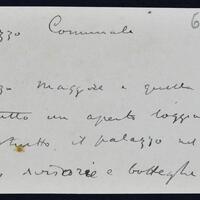 zzo Comunale 6
Maggiore e quella
tutto un aperto loggia
il palazzo nel
e botteghe